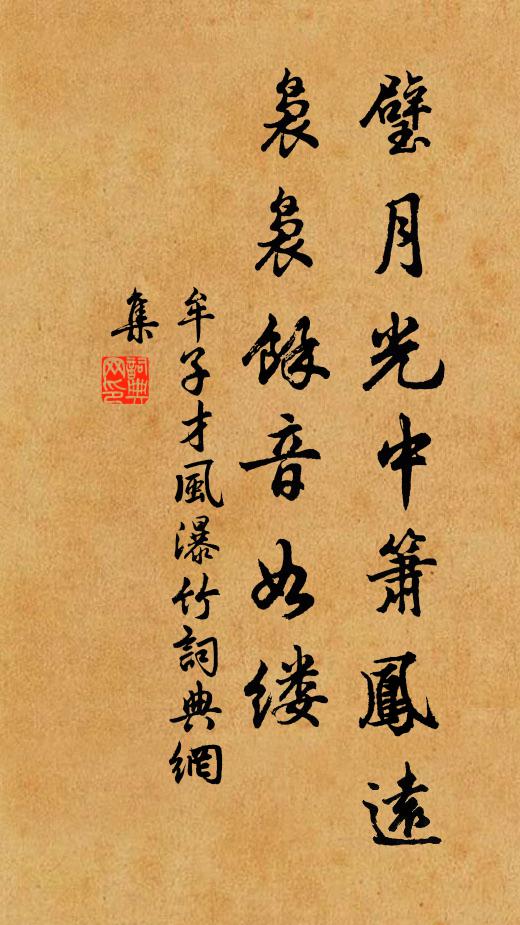 璧月光中簫鳳遠
裊裊餘音如缕
牟子才風瀑竹詞典網
集
詞典
网印